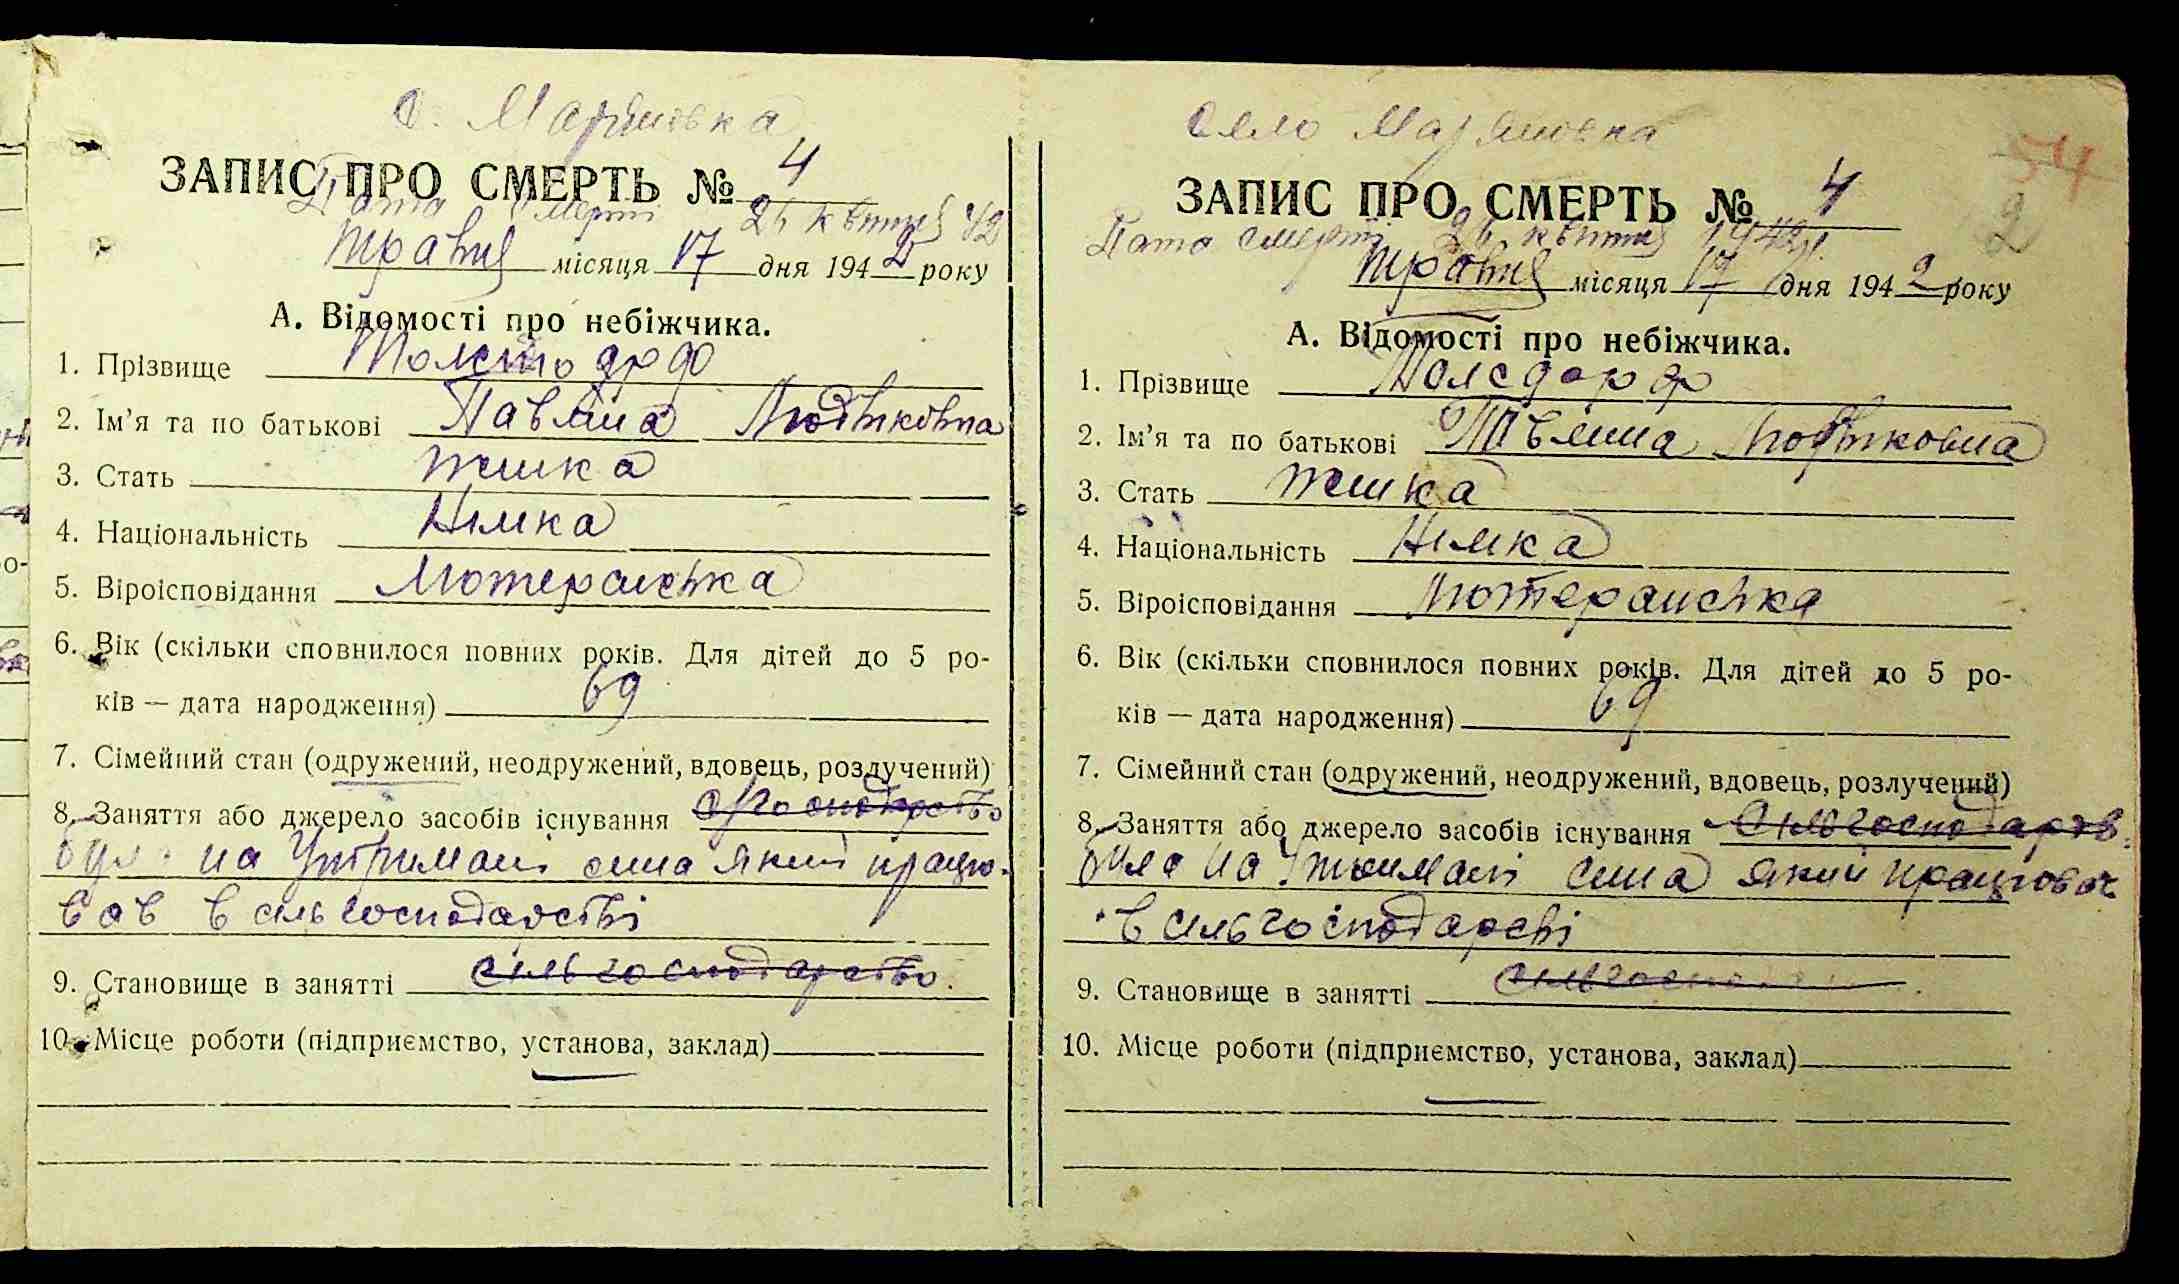 с. Мар'яновка
ЗАПИС ПРО СМЕРТЬ № 4
Дата смерті 26 квітня 42
травня місяця 17 дня 1942 року
А. Відомості про небіжчика.
1. Прізвище
2. Ім'я та по батькові Павліна Людвіковна
3. Стать жінка
4. Національність Німка
5. Віроісповідання Лютеранська
6. Вік (скільки сповнилося повних років. Для дітей до 5 ро-
ків — дата народження) 69
7. Сімейний стан (одружений, неодружений, вдовець, розлучений)
8. Заняття або джерело засобів існування
була на утримані сина який працю-
вав в сільгосподарстві
9. Становище в занятті сільгосподарство.
10. Місце роботи (підприємство, установа, заклад)
село Мар'яновка
54
2
ЗАПИС ПРО СМЕРТЬ № 4
Дата смерті 26 квітня 1942 р.
травня місяця 17 дня 1942 року
А. Відомості про небіжчика.
1. Прізвище
2. Ім'я та по батькові Павліна Людвіковна
3. Стать жінка
4. Національність Німка
5. Віроісповідання Лютеранська
6. Вік (скільки сповнилося повних років. Для дітей до 5 ро-
ків — дата народження) 69
7. Сімейний стан (одружений, неодружений, вдовець, розлучений)
8. Заняття або джерело засобів існування
була на утримані сина який працював
в сільгосподарсві
9. Становище в занятті
10. Місце роботи (підприємство, установа, заклад)